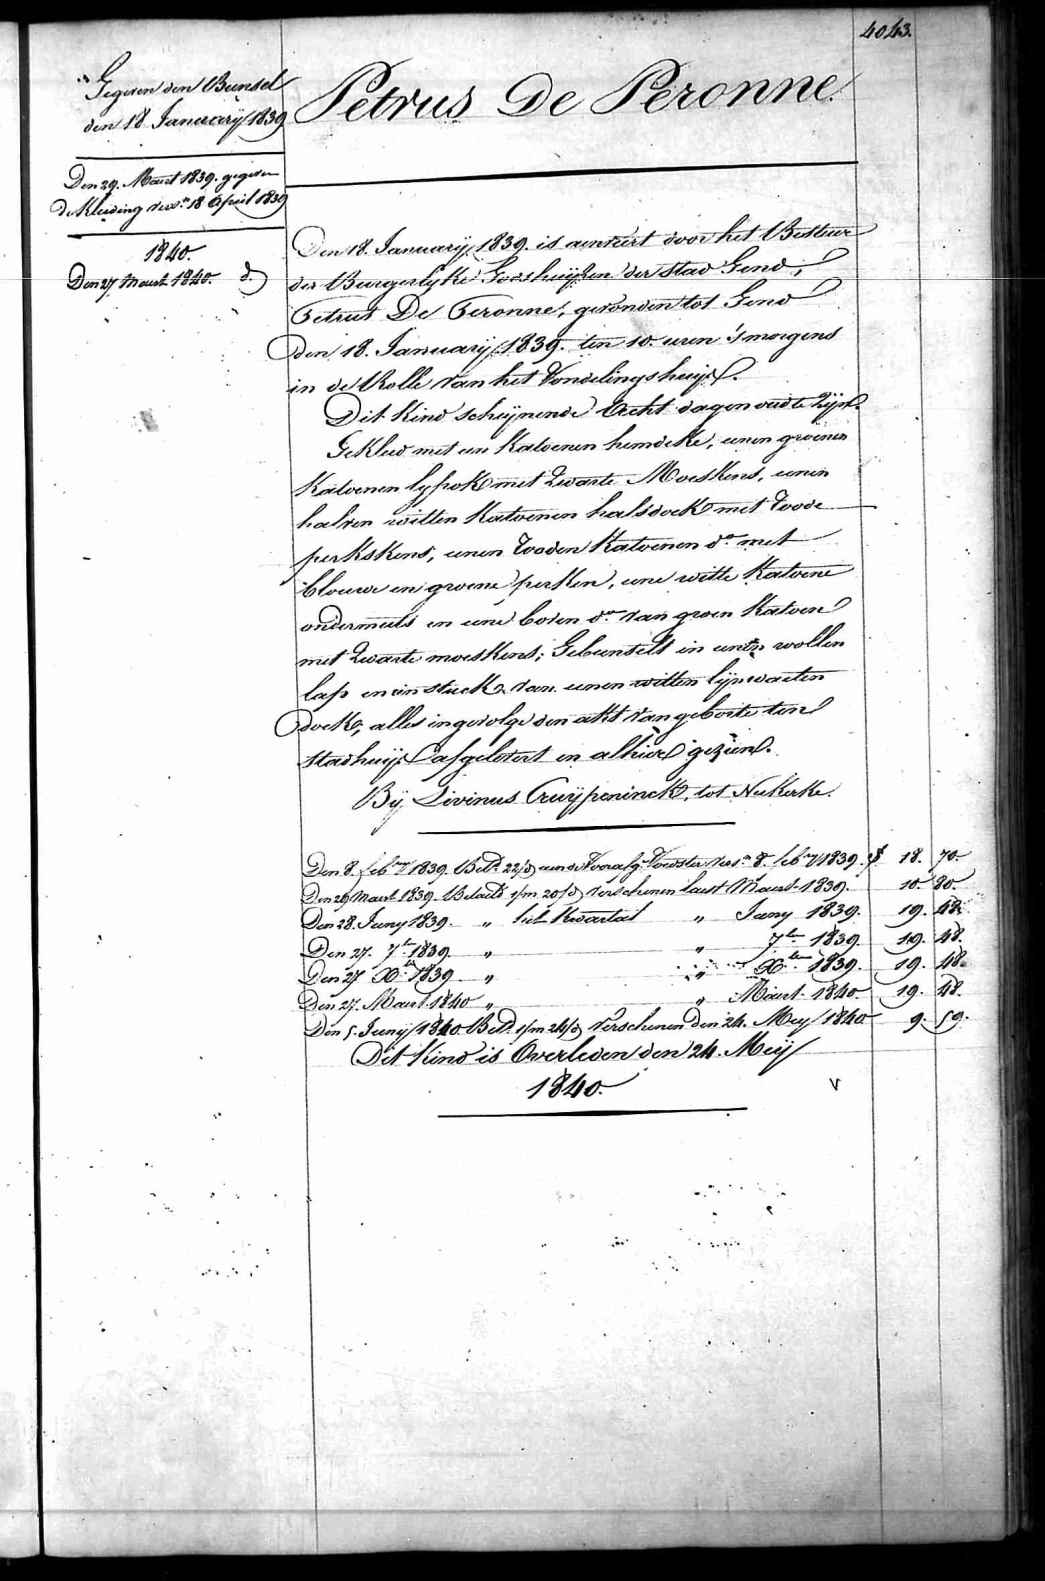 4043.
Petrus De Peronne.
Gegeven den Bunsel
den 18. Januarij 1839
Den 29. Maart 1839. gegeven
de Kleeding versn. 18 April 1839
1840.
Den 27 Maart 1840. do
Den 18. Januarij 1839. is aenveert door het Bestuur
der Burgerlyke Godshuijzen der stad Gend,
Petrus De Peronne, gevonden tot Gend
den 18. Januarij 1839. ten 10. uren 's morgens
in de Rolle van het Vondelingshuijs.
Dit Kind schijnende Acht dagen oud te Zijn.
Gekleed met een Katoenen hemdeke, eenen groenen
Katoenen lyfrok met Zwarte Moeskens, eenen
halven witten Katoenen halsdoek met roode
perkskens, eenen rooden Katoenen do. met
blouwe en groene perken, eene witte Katoene
ondermuts en eene boven do. van groen Katoen
met Zwarte moeskens; Gebunselt in eenen wollen
lap en een stuck van eenen witten lynwaeten
doek, alles ingevolge den akt van geboorte ten
stadhuijse afgelevert en alhier gezien.
By Livinus Cruijpeninck, tot Nukerke.
Den 8. febry 1839. Betd. 22/d aen de Voorafg. Voedster versn. 8. febry 1839. f 18. 70.
Den 29 Maart 1839. Betaeld 1/m 20/d verschenen laest Maart 1839. 10. 80.
Den 28. Juny 1839. " het Kwartael " Juny 1839. 19. 48.
Den 27. 7br 1839. " " 7ber 1839. 19. 48.
Den 27 Xbr 1839. " " Xber 1839. 19. 48.
Den 27. Maart 1840 " " Maart 1840. 19. 48.
Den 5. Juny 1840. Betd. 1/m 24/d verschenen den 24. Mey 1840 9. 59.
Dit Kind is Overleden den 24. Meij
1840. v